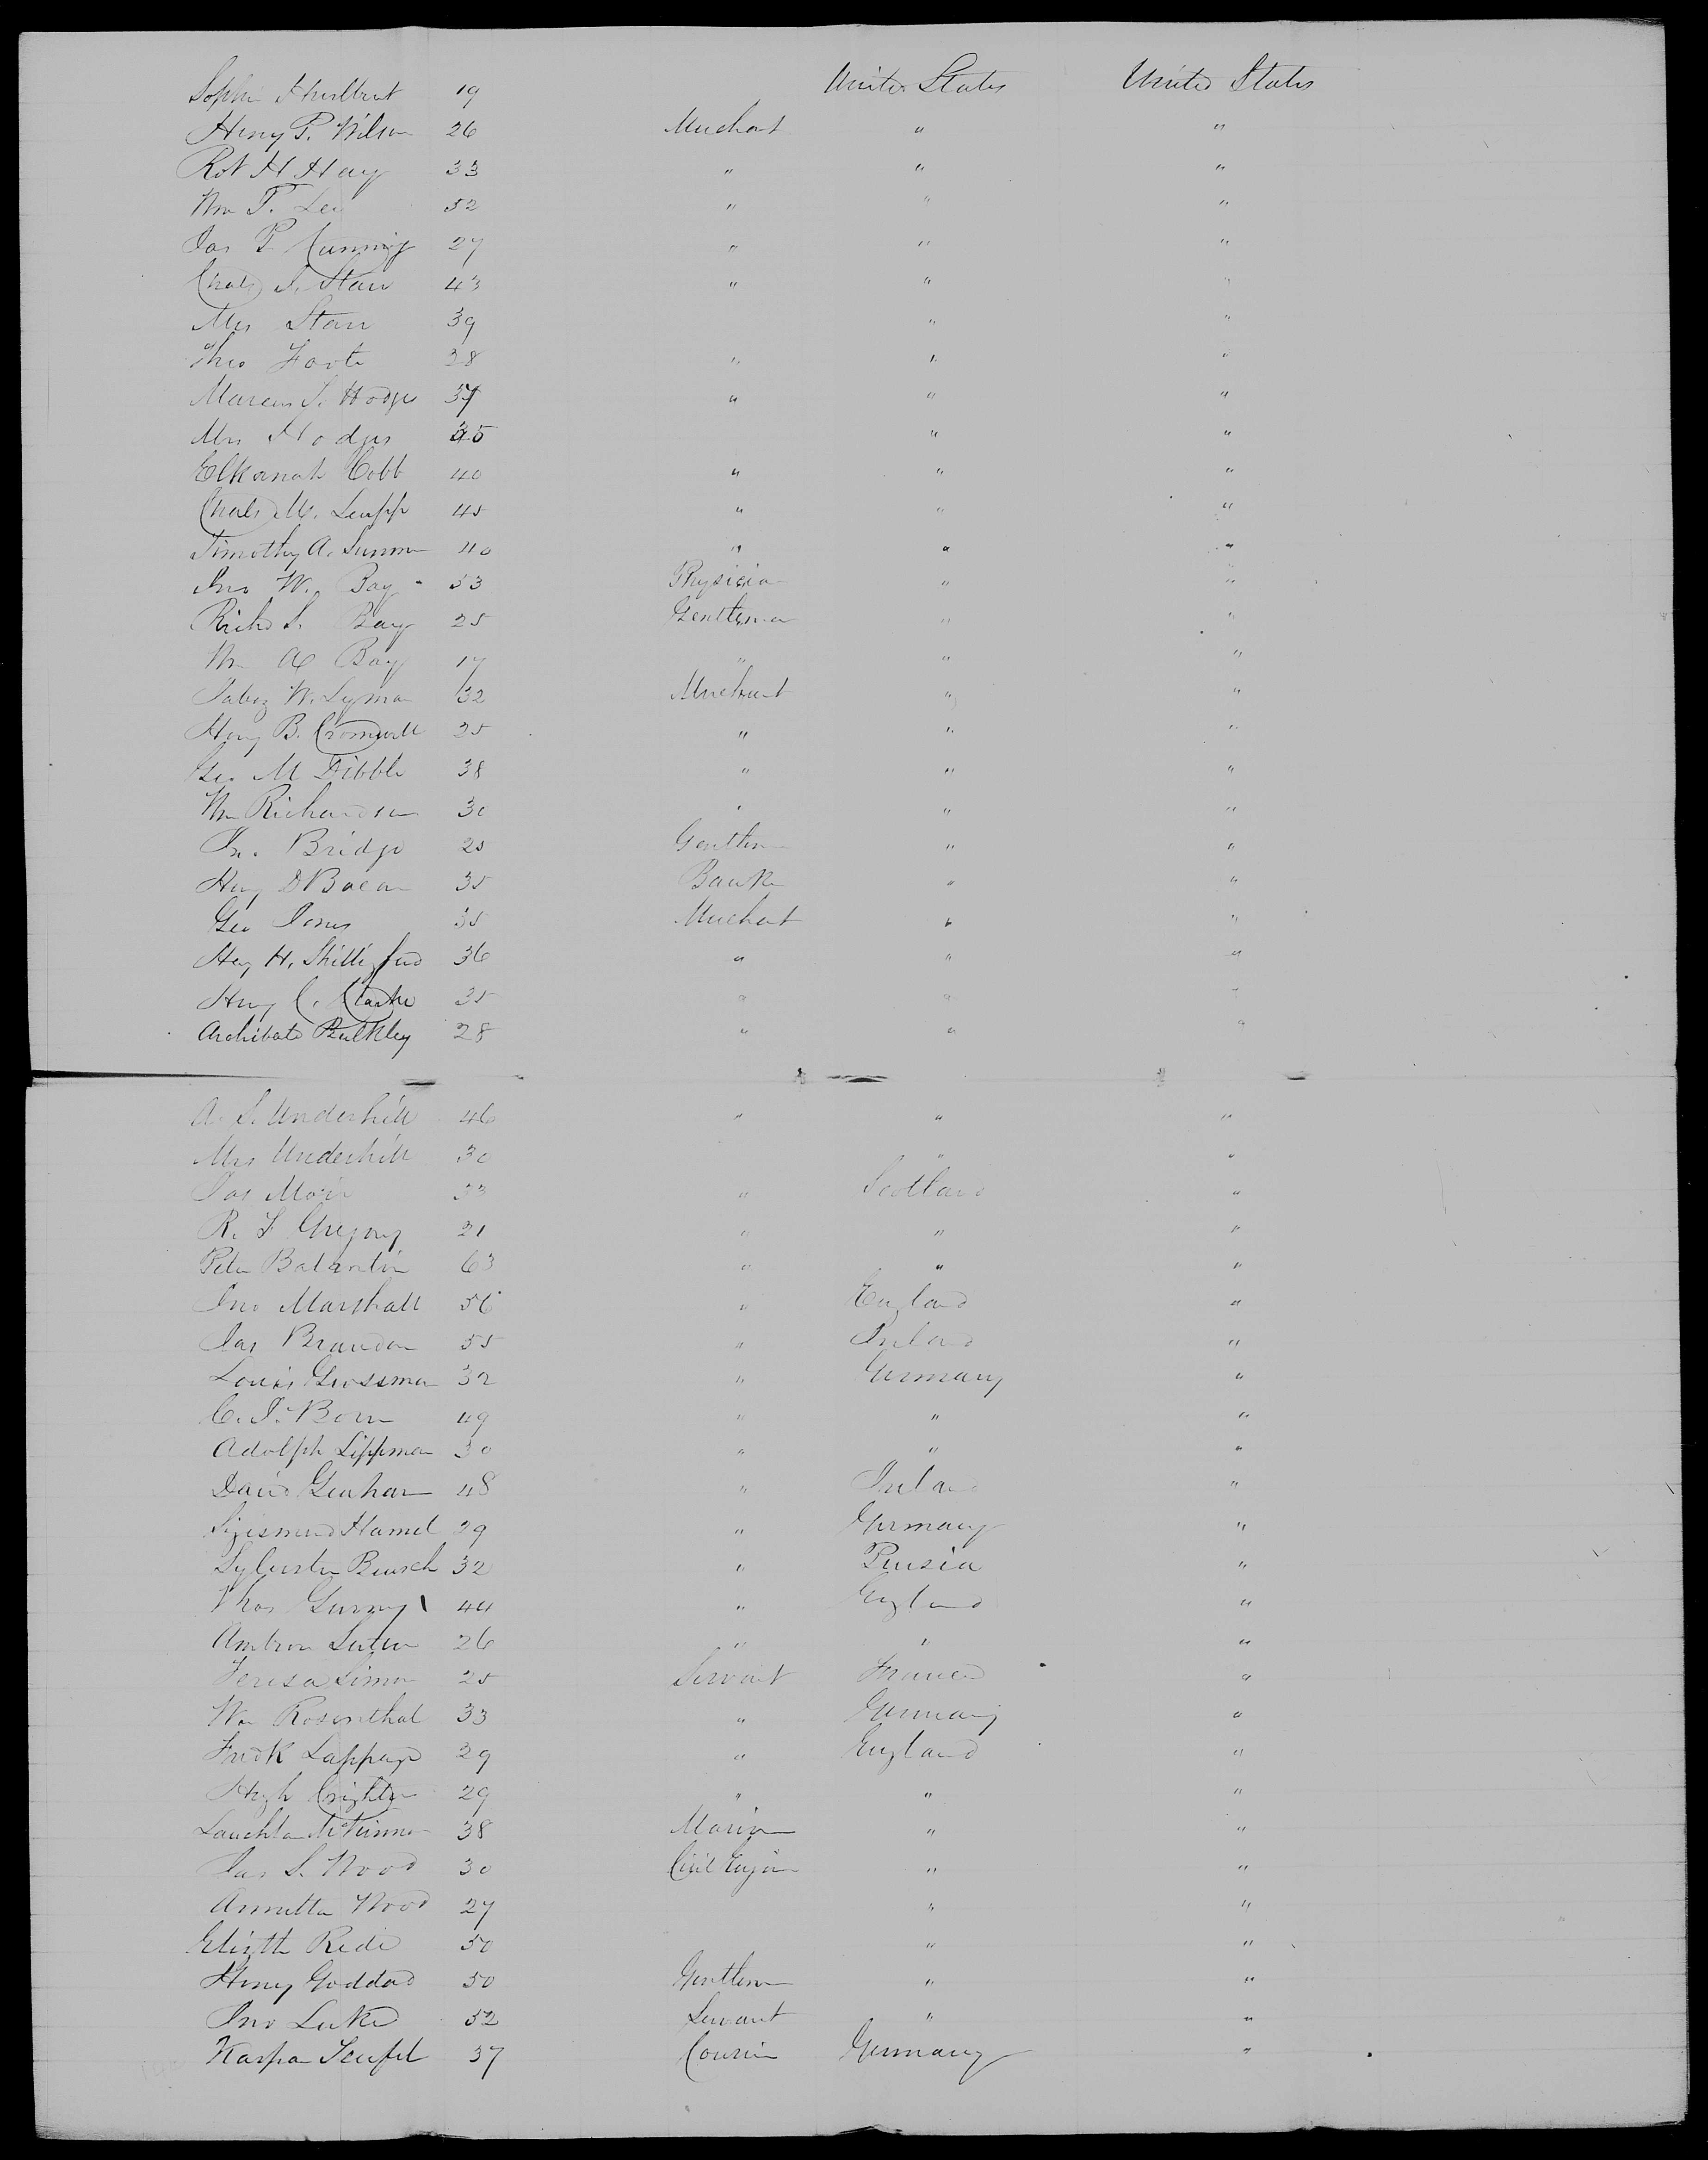 Sophia Hurlbut 19 United States United States
Henry P. Wilson 26 Merchant " "
Robt H Hay 33 " " "
Wm T. Lee 52 " " "
Jas P. Cumming 27 " " "
Chals S. Starr 43 " " "
Mrs Starr 39 " "
Theo Foote 28 " " "
Marcus S. Hodges 37 " " "
Mrs Hodges 35 " "
Elkanah Cobb 40 " " "
Chals M. Leupp 45 " " "
Timothy A. Sumner 40 " " "
Jno W. Bay 53 Physician " "
Richd S. Bay 25 Gentleman " "
Wm A Bay 17 " " "
Jabez W. Lyman 32 Merchant " "
Henry B. Cromwell 25 " " "
Geo M Dibble 38 " " "
Wm Richardson 30 " " "
Jno. Bridge 25 Gentlem " "
Heny D Bacon 35 Banker " "
Geo Jones 35 Merchant " "
Heny H. Shillingford 36 " " "
Henry C. Clarke 35 " " "
Archibald Bulkley 28 " " "
A. S. Underhill 46 " " "
Mrs Underhill 30 " "
Jas Moir 33 " Scotland "
R. F Gregory 21 " " "
Peter Balantin 63 " " "
Jno Marshall 56 " England "
Jas Brandon 55 " Ireland "
Louis Grossman 32 " Germany "
C. F. Born 49 " " "
Adolph Lippman 30 " " "
David Graham 48 " Ireland "
Sigismund Hamel 29 " Germany "
Sylvester Beusch 32 " Prusia "
Thos Gurney 44 " England "
26 " " "
Teresa Simon 25 Servant France "
Wm Rosenthal 33 " Germany "
Fredk Lappage 29 " England "
Hugh Crighton 29 " " "
Lauchlan McKinnon 38 Mariner " "
Jas S. Wood 30 Civil Engin " "
Annetta Wood 27 " "
Elizth Rede 50 " "
Henry Goddard 50 Gentlem " "
Jno Luke 52 Servant " "
Kaspar Teufel 37 Courier Germany "